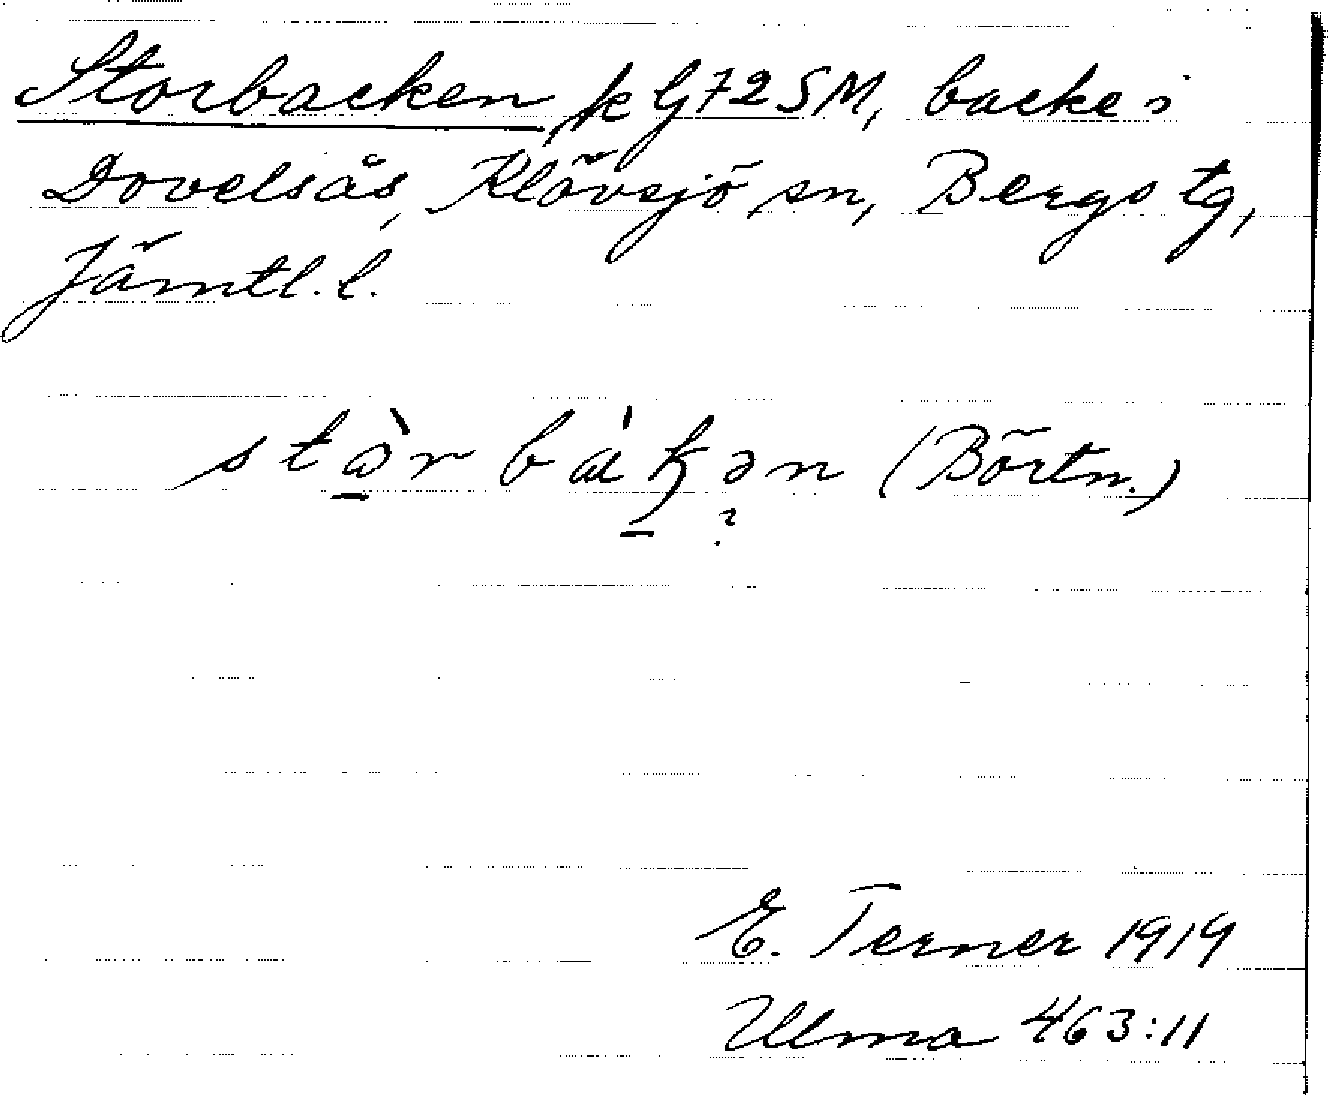 Storbacken, k G 72 SM, backe i
Dovelsås, Klövsjö sn, Bergs tg,
Jämtl. l.
stɷ̀rbákən (Börtn.)
?
E. Terner 1919
Ulma 463:11